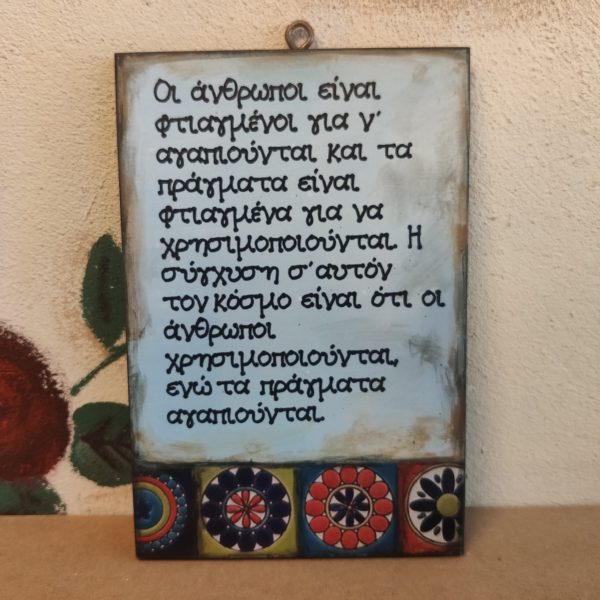 Οι άνθρωποι είναι
φτιαγμένοι για ν'
αγαπιούνται και τα
πράγματα είναι
φτιαγμένα για να
χρησιμοποιούνται. Η
σύγχυση σ'αυτόν
τον κόσμο είναι ότι οι
άνθρωποι
χρησιμοποιούνται,
ενώ τα πράγματα
αγαπιούνται.